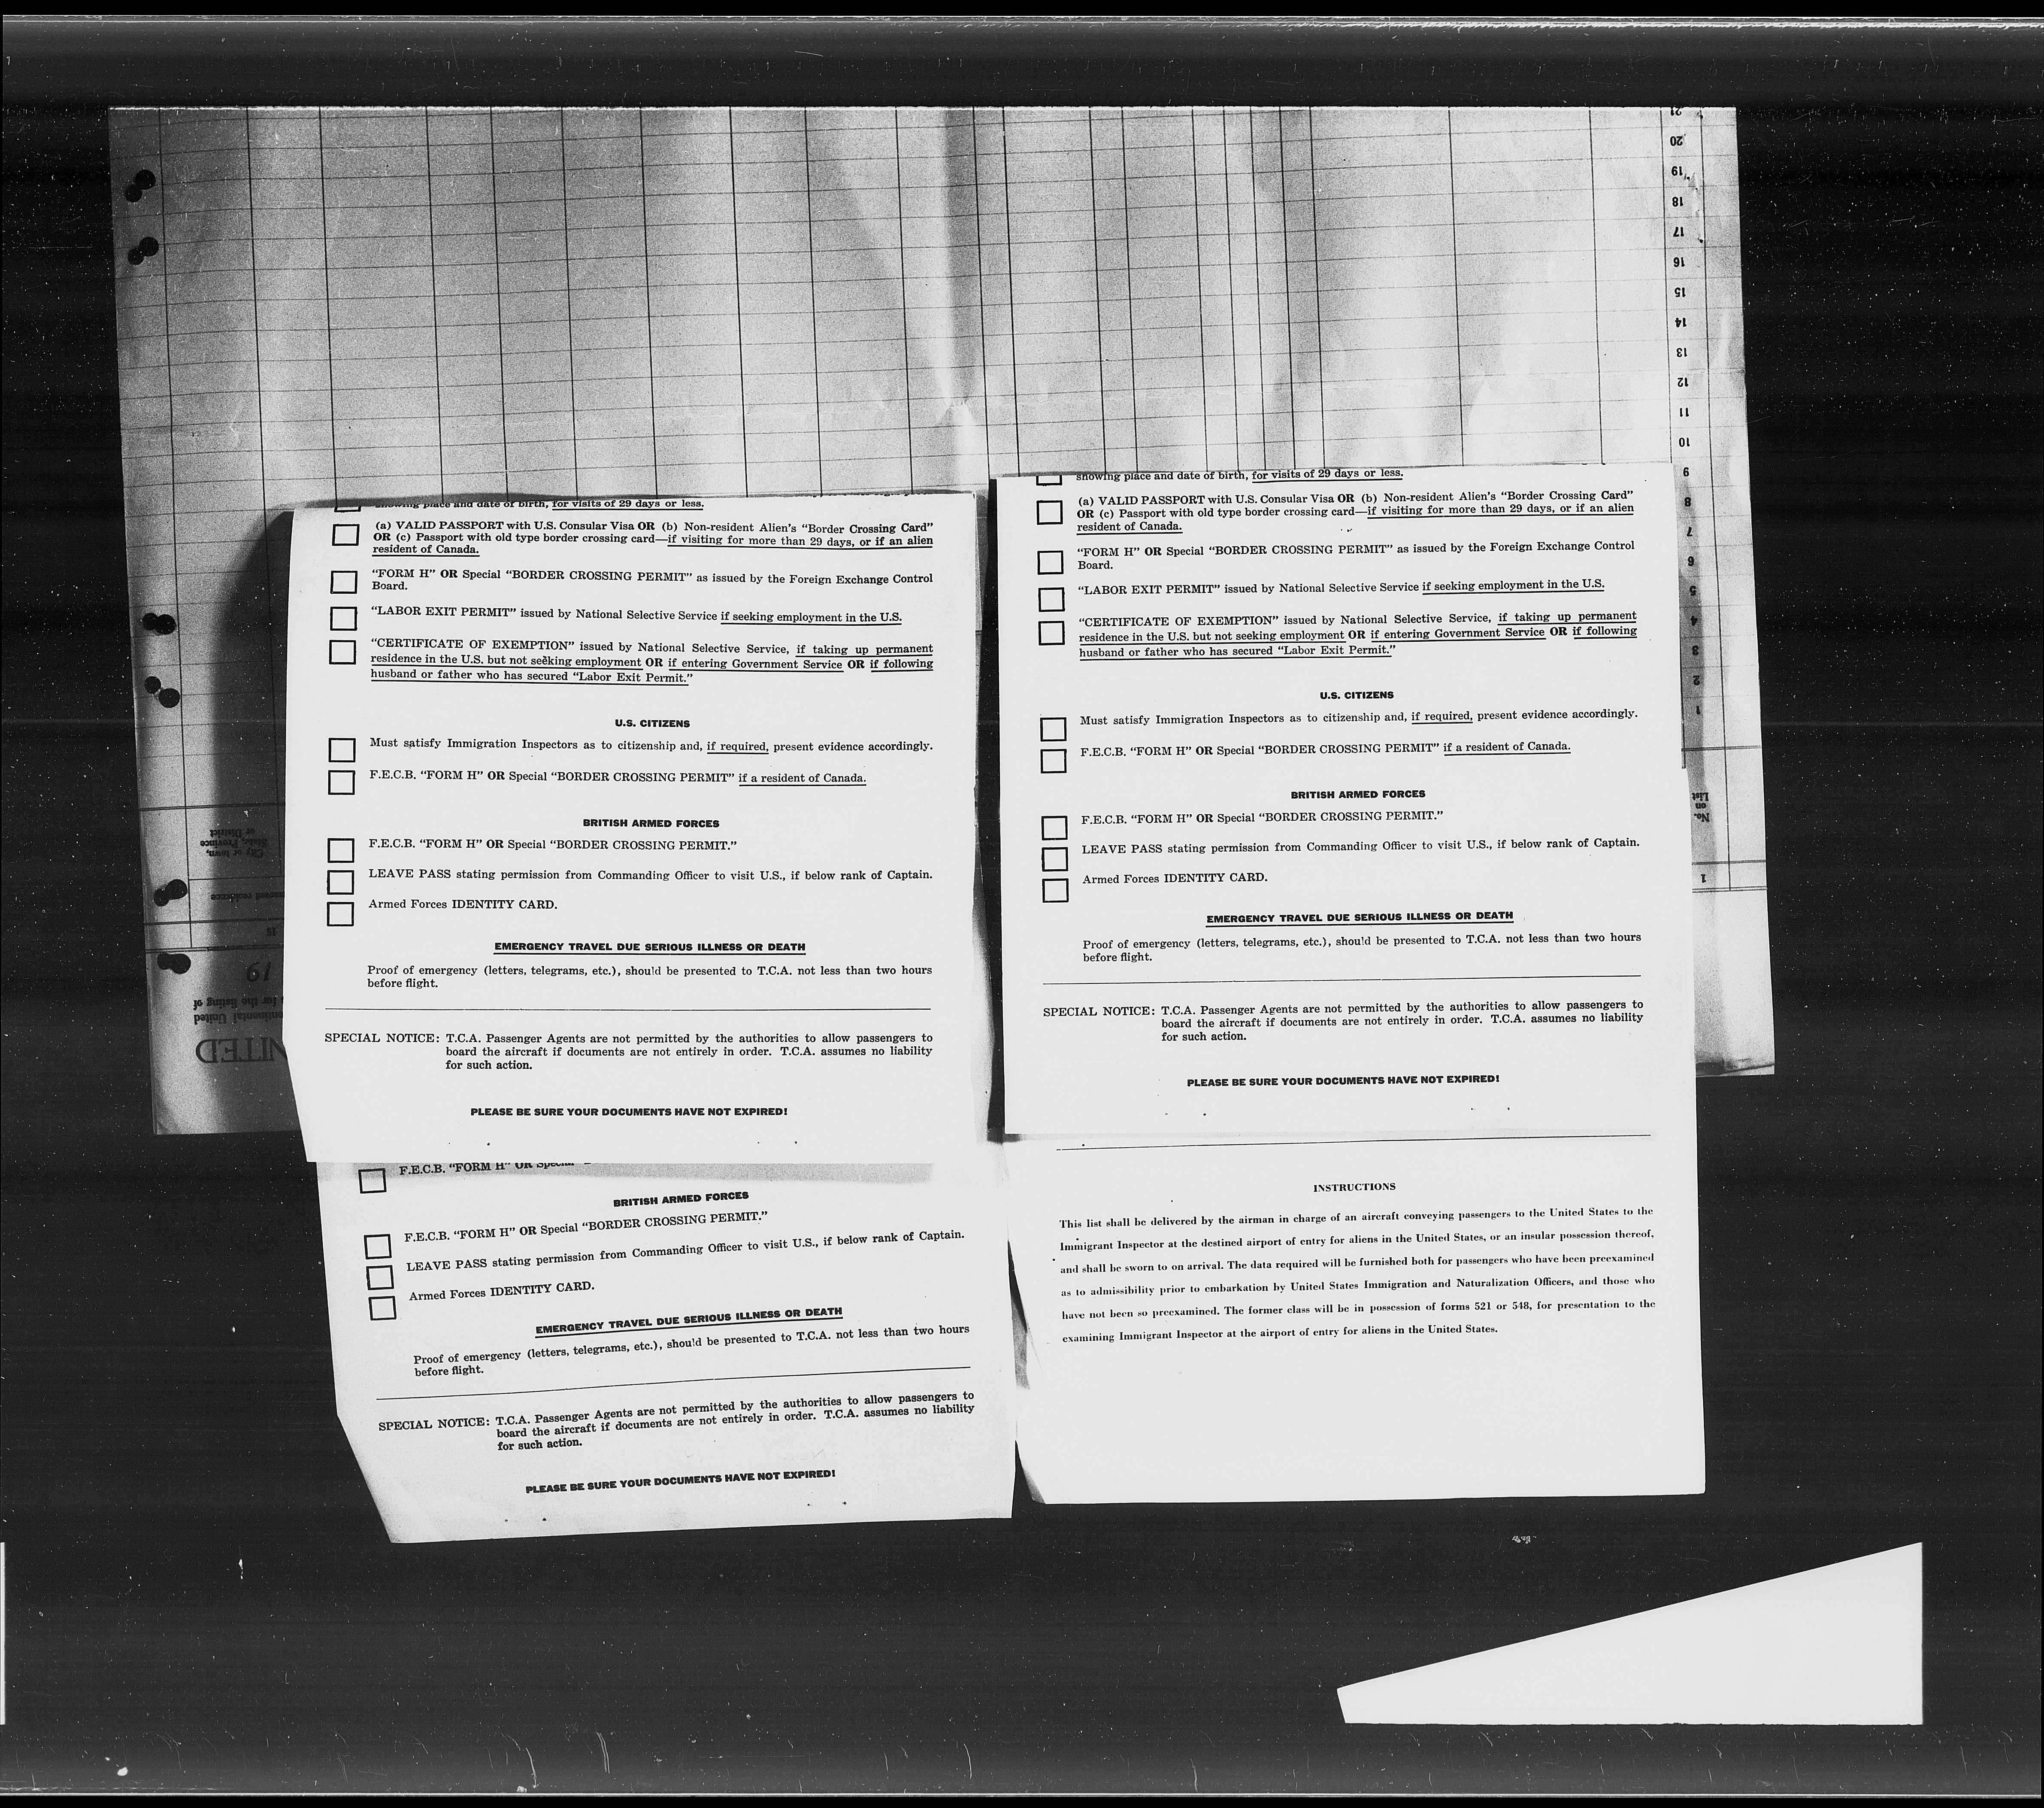 21
20
19
18
17
16
15
14
13
12
11
10
9
8
7
6
5
4
3
2
1
No.
on
List
1
City or town,
State, Province
or District
15
19
for the listing of
United
showing place and date of birth, for visits of 29 days or less.
(a) VALID PASSPORT with U.S. Consular Visa OR (b) Non-resident Alien's "Border Crossing Card"
OR (c) Passport with old type border crossing card—if visiting for more than 29 days, or if an alien
resident of Canada.
"FORM H" OR Special "BORDER CROSSING PERMIT" as issued by the Foreign Exchange Control
Board.
"LABOR EXIT PERMIT" issued by National Selective Service if seeking employment in the U.S.
"CERTIFICATE OF EXEMPTION" issued by National Selective Service, if taking up permanent
residence in the U.S. but not seeking employment OR if entering Government Service OR if following
husband or father who has secured "Labor Exit Permit."
U.S. CITIZENS
Must satisfy Immigration Inspectors as to citizenship and, if required, present evidence accordingly.
F.E.C.B. "FORM H" OR Special "BORDER CROSSING PERMIT" if a resident of Canada.
BRITISH ARMED FORCES
F.E.C.B. "FORM H" OR Special "BORDER CROSSING PERMIT."
LEAVE PASS stating permission from Commanding Officer to visit U.S., if below rank of Captain.
Armed Forces IDENTITY CARD.
EMERGENCY TRAVEL DUE SERIOUS ILLNESS OR DEATH
Proof of emergency (letters, telegrams, etc.), should be presented to T.C.A. not less than two hours
before flight.
SPECIAL NOTICE: T.C.A. Passenger Agents are not permitted by the authorities to allow passengers to
board the aircraft if documents are not entirely in order. T.C.A. assumes no liability
for such action.
PLEASE BE SURE YOUR DOCUMENTS HAVE NOT EXPIRED!
F.E.C.B. "FORM H" OR Special
BRITISH ARMED FORCES
F.E.C.B. "FORM H" OR Special "BORDER CROSSING PERMIT."
LEAVE PASS stating permission from Commanding Officer to visit U.S., if below rank of Captain.
Armed Forces IDENTITY CARD.
EMERGENCY TRAVEL DUE SERIOUS ILLNESS OR DEATH
Proof of emergency (letters, telegrams, etc.), should be presented to T.C.A. not less than two hours
before flight.
SPECIAL NOTICE: T.C.A. Passenger Agents are not permitted by the authorities to allow passengers to
board the aircraft if documents are not entirely in order. T.C.A. assumes no liability
for such action.
PLEASE BE SURE YOUR DOCUMENTS HAVE NOT EXPIRED!
showing place and date of birth, for visits of 29 days or less.
(a) VALID PASSPORT with U.S. Consular Visa OR (b) Non-resident Alien's "Border Crossing Card"
OR (c) Passport with old type border crossing card—if visiting for more than 29 days, or if an alien
resident of Canada.
"FORM H" OR Special "BORDER CROSSING PERMIT" as issued by the Foreign Exchange Control
Board.
"LABOR EXIT PERMIT" issued by National Selective Service if seeking employment in the U.S.
"CERTIFICATE OF EXEMPTION" issued by National Selective Service, if taking up permanent
residence in the U.S. but not seeking employment OR if entering Government Service OR if following
husband or father who has secured "Labor Exit Permit."
U.S. CITIZENS
Must satisfy Immigration Inspectors as to citizenship and, if required, present evidence accordingly.
F.E.C.B. "FORM H" OR Special "BORDER CROSSING PERMIT" if a resident of Canada.
BRITISH ARMED FORCES
F.E.C.B. "FORM H" OR Special "BORDER CROSSING PERMIT."
LEAVE PASS stating permission from Commanding Officer to visit U.S., if below rank of Captain.
Armed Forces IDENTITY CARD.
EMERGENCY TRAVEL DUE SERIOUS ILLNESS OR DEATH
Proof of emergency (letters, telegrams, etc.), should be presented to T.C.A. not less than two hours
before flight.
SPECIAL NOTICE: T.C.A. Passenger Agents are not permitted by the authorities to allow passengers to
board the aircraft if documents are not entirely in order. T.C.A. assumes no liability
for such action.
PLEASE BE SURE YOUR DOCUMENTS HAVE NOT EXPIRED!
INSTRUCTIONS
This list shall be delivered by the airman in charge of an aircraft conveying passengers to the United States to the
Immigrant Inspector at the destined airport of entry for aliens in the United States, or an insular possession thereof,
and shall be sworn to on arrival. The data required will be furnished both for passengers who have been preexamined
as to admissibility prior to embarkation by United States Immigration and Naturalization Officers, and those who
have not been so preexamined. The former class will be in possession of forms 521 or 548, for presentation to the
examining Immigrant Inspector at the airport of entry for aliens in the United States.